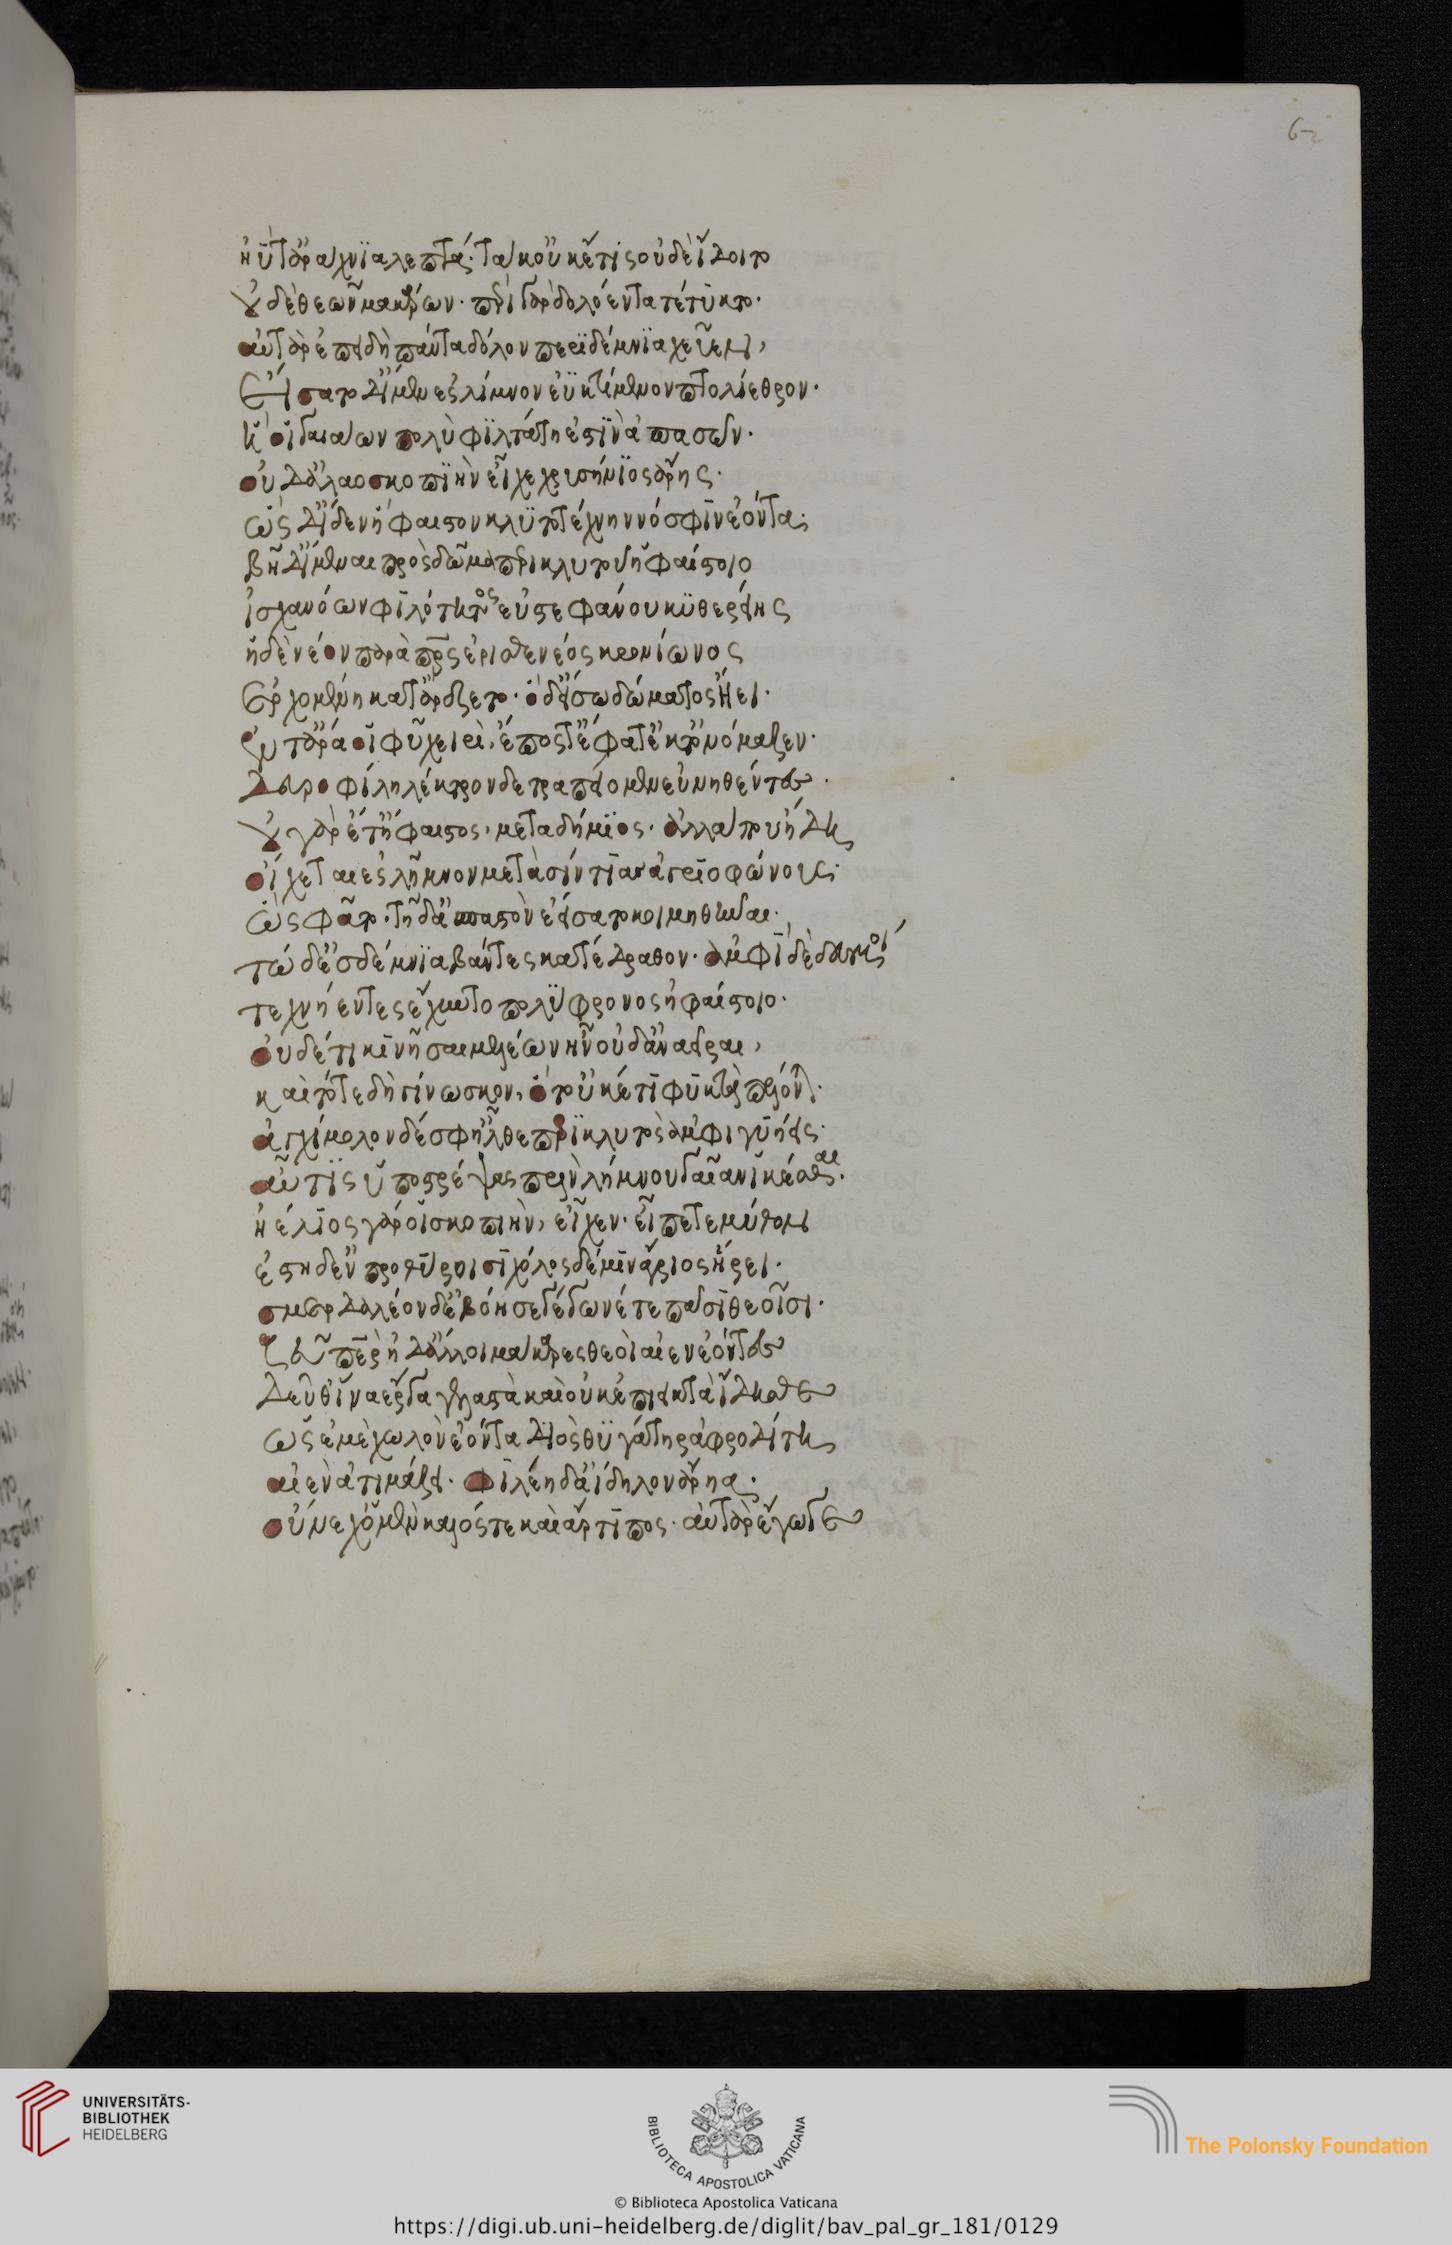 62
ἠΰτ' ἀράχνια λεπτά· τά κ' οὔ κέ τις οὐδὲ ἴδοιτο
οὐδὲ θεῶν μακάρων· περὶ γὰρ δολόεντα τέτυκτο·
αὐτὰρ ἐπειδὴ πάντα δόλον περὶ δέμνια χεῦεν,
εἴσατ' ἴμεν ἐς λῆμνον ἐϋκτίμενον πτολίεθρον·
ἥ οἱ γαιάων πολὺ φιλτάτη ἐστὶν ἁπασῶν·
οὐδ' ἀλαοσκοπιὴν εἶχε χρυσήνιος ἄρης·
ὡς ἴδεν ἥφαιστον κλυτοτέχνην νόσφιν ἐόντα·
βῆ δ' ἴμεναι πρὸς δῶμα περικλυτοῦ ἡφαίστοιο
ἰσχανόων φιλότητος εὐστεφάνου κυθερείης
ἡ δὲ νέον παρὰ πατρὸς ἐρισθενέος κρονίωνος
ἐρχομένη κατ' ἄρ' ἕζετο· ὁ δ' εἴσω δώματος ᾔει·
ἔν τ' ἄρα οἱ φῦ χειρὶ, ἔπος τ' ἔφατ' ἔκ τ' ὀνόμαζεν·
δεῦρο φίλη λέκτρονδε τραπείομεν εὐνηθέντες·
οὐ γὰρ ἔθ' ἥφαιστος, μεταδήμιος· ἀλλά που ἤδη
οἴχεται ἐς λῆμνον μετὰ σίντιας ἀγριοφώνους·
ὣς φάτο· τῇ δ' ἀσπαστὸν ἐείσατο κοιμηθῆναι·
τὼ δ' ἐς δέμνια βάντες κατέδραθον· ἀμφὶ δὲ δεσμοὶ
τεχνήεντες ἔχυντο πολύφρονος ἡφαίστοιο·
οὐδέ τι κινῆσαι μελέων ἦν οὐδ' ἀναεῖραι,
καὶ τότε δὴ γίνωσκον, ὅτ' οὐκέτι φυκτὰ πέλοντο·
ἀγχίμολον δέ σφ' ἦλθε περικλυτὸς ἀμφιγυήεις·
αὖτις ὑποστρέψας πρὶν λήμνου γαῖαν ἱκέσθαι·
ἠέλιος γάρ οἱ σκοπιὴν, εἶχεν· εἶπέ τε μῦθον
ἔστη δ' ἐν προθύροισι χόλος δέ μιν ἄγριος ᾕρει·
σμερδαλέον δ' ἐβόησε γέγωνέ τε πᾶσι θεοῖσι·
ζεῦ πάτερ ἠδ' ἄλλοι μάκαρες θεοὶ αἰὲν ἐόντες
δεῦθ' ἵνα ἔργα γελαστὰ καὶ οὐκ ἐπιεικτὰ ἴδησθε
ὡς ἐμὲ χωλὸν ἐόντα διὸς θυγάτηρ ἀφροδίτη
αἰὲν ἀτιμάζει· φιλέη δ' ἀΐδηλον ἄρηα·
οὕνεχ' ὁ μὲν καλός τε καὶ ἀρτίπος· αὐτὰρ ἔγωγε
UNIVERSITÄTS-
BIBLIOTHEK
HEIDELBERG
BIBLIOTECA APOSTOLICA VATICANA
The Polonsky Foundation
© Biblioteca Apostolica Vaticana
https://digi.ub.uni-heidelberg.de/diglit/bav_pal_gr_181/0129